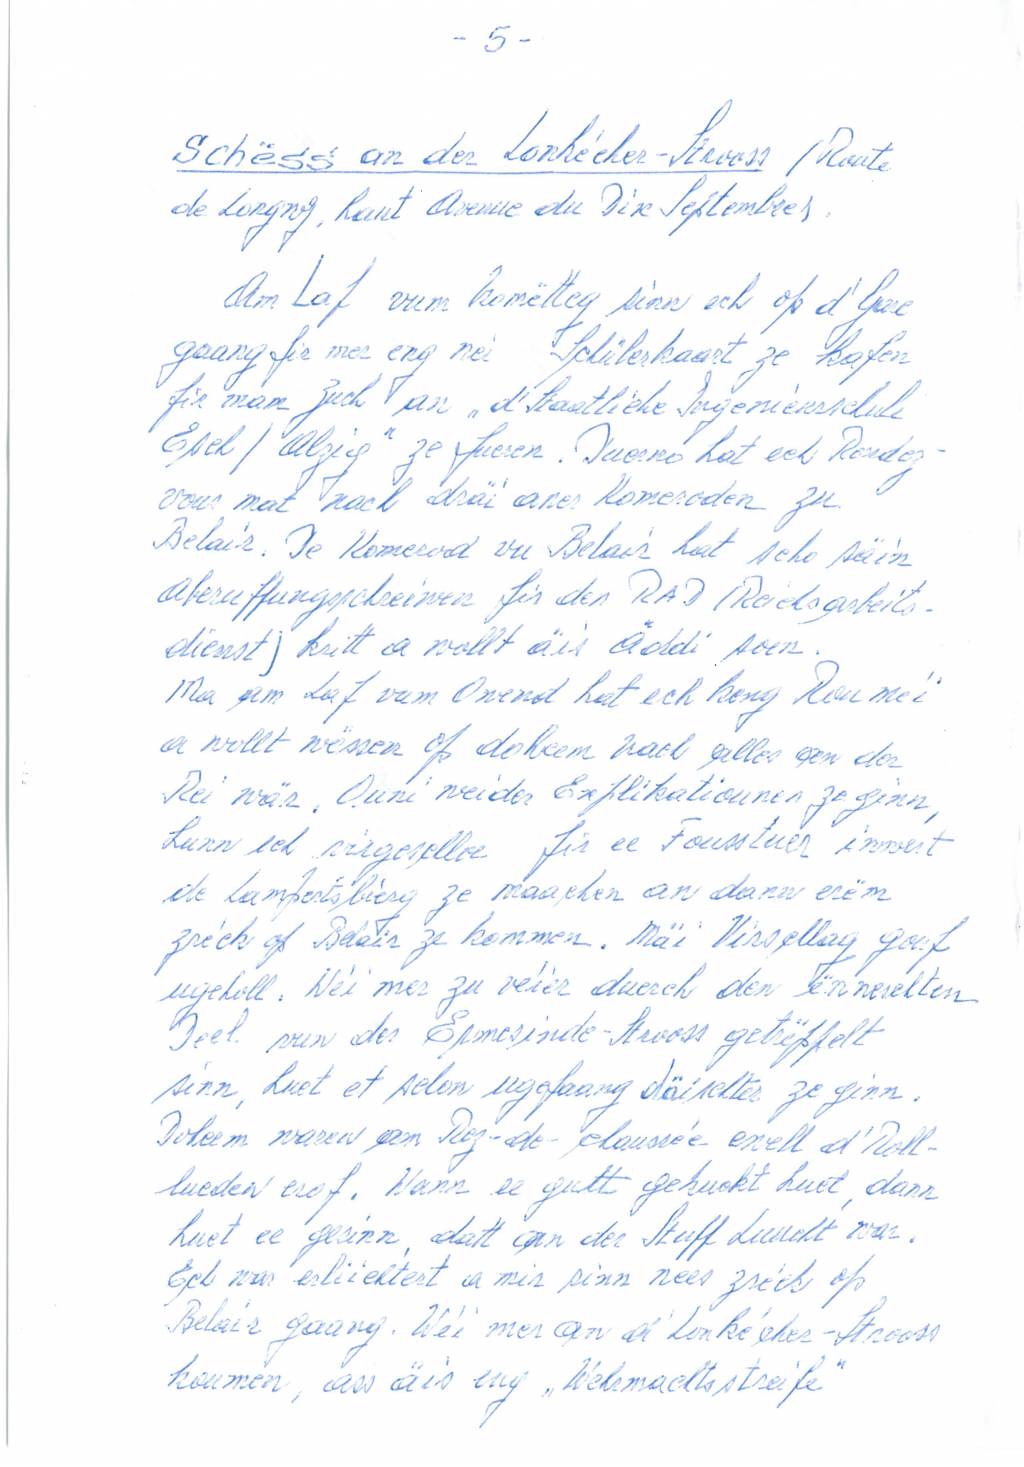 - 5 -
Schëss an der Lonkécher-Strooss (Route
de Longwy, haut Avenue du Dix Septembre).
Am Laf vum Nomëtteg sinn ech op d'Gare
gaang fir mer eng nei Schülerkaart ze kafen
fir mam Zuch an „d'Staatliche Ingenieurschule
Esch / Alzig" ze fueren. Duerno hat ech Rendez-
vous mat nach dräi aner Komeroden zu
Belair. De Komerod vu Belair hat scho säin
Aberuffungsschreiwen fir den RAD (Reichsarbeits-
dienst) kritt a wollt äis Äddi soen.
Ma am Laf vum Owend hat ech keng Rou méi
a wollt wëssen op doheem nach alles an der
Rei wär. Ouni weider Explikatiounen ze ginn,
hunn ech virgeschloe fir ee Fousstuer iwwert
de Lampertsbierg ze maachen an dann erëm
zréck op Belair ze kommen. Mäi Virschlag gouf
ugeholl. Wéi mer zu véier duerch den ënneschten
Deel vun der Ermesinde-Strooss getrëppelt
sinn, huet et schon ugefaang däischter ze ginn.
Doheem waren am Rez-de-chaussée all d'Roll-
lueden erof. Wann ee gutt gekuckt huet, dann
huet ee gesinn, datt an der Stuff Luucht war.
Ech war erliichtert a mir sinn nees zréck op
Belair gaang. Wéi mer an d'Lonkécher-Strooss
koumen, ass äis eng „Wehrmachtsstreife"